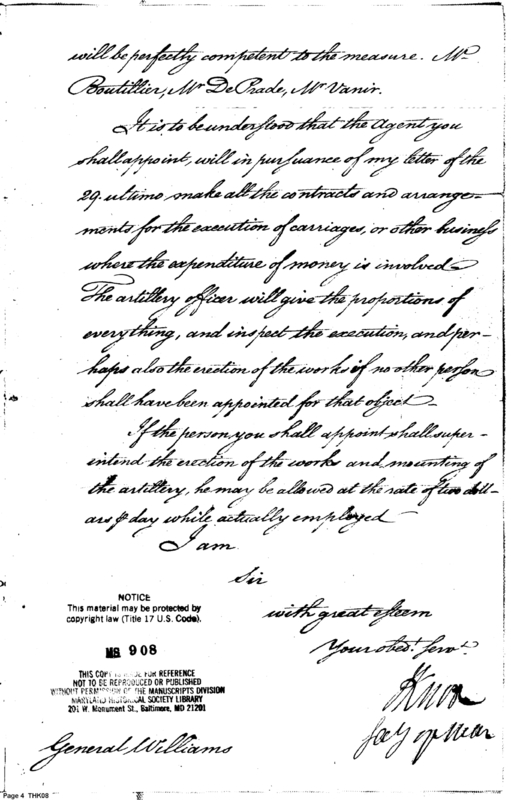 will be perfectly competent to the measure. Mr
Boutillier, Mr De Prade, Mr Vanir.
It is to be understood that the Agent you
shall appoint, will in pursuance of my letter of the
29. ultimo make all the contracts and arrange-
ments for the execution of carriages, or other business
where the expenditure of money is involved—
The artillery officer will give the proportions of
everything, and inspect the execution, and per-
haps also the erection of the works if no other person
shall have been appointed for that object—
If the person you shall appoint shall super-
intend the erection of the works and mounting of
the artillery, he may be allowed at the rate of two doll-
ars ⅌ day while actually employed—
I am
Sir
with great esteem
Your obed. servt.
HKnox
secy of war
NOTICE
This material may be protected by
copyright law (Title 17 U.S. Code).
MS 908
THIS COPY IS MADE FOR REFERENCE
NOT TO BE REPRODUCED OR PUBLISHED
WITHOUT PERMISSION OF THE MANUSCRIPTS DIVISION
MARYLAND HISTORICAL SOCIETY LIBRARY
201 W. Monument St., Baltimore, MD 21201
General Williams
Page 4 THK08